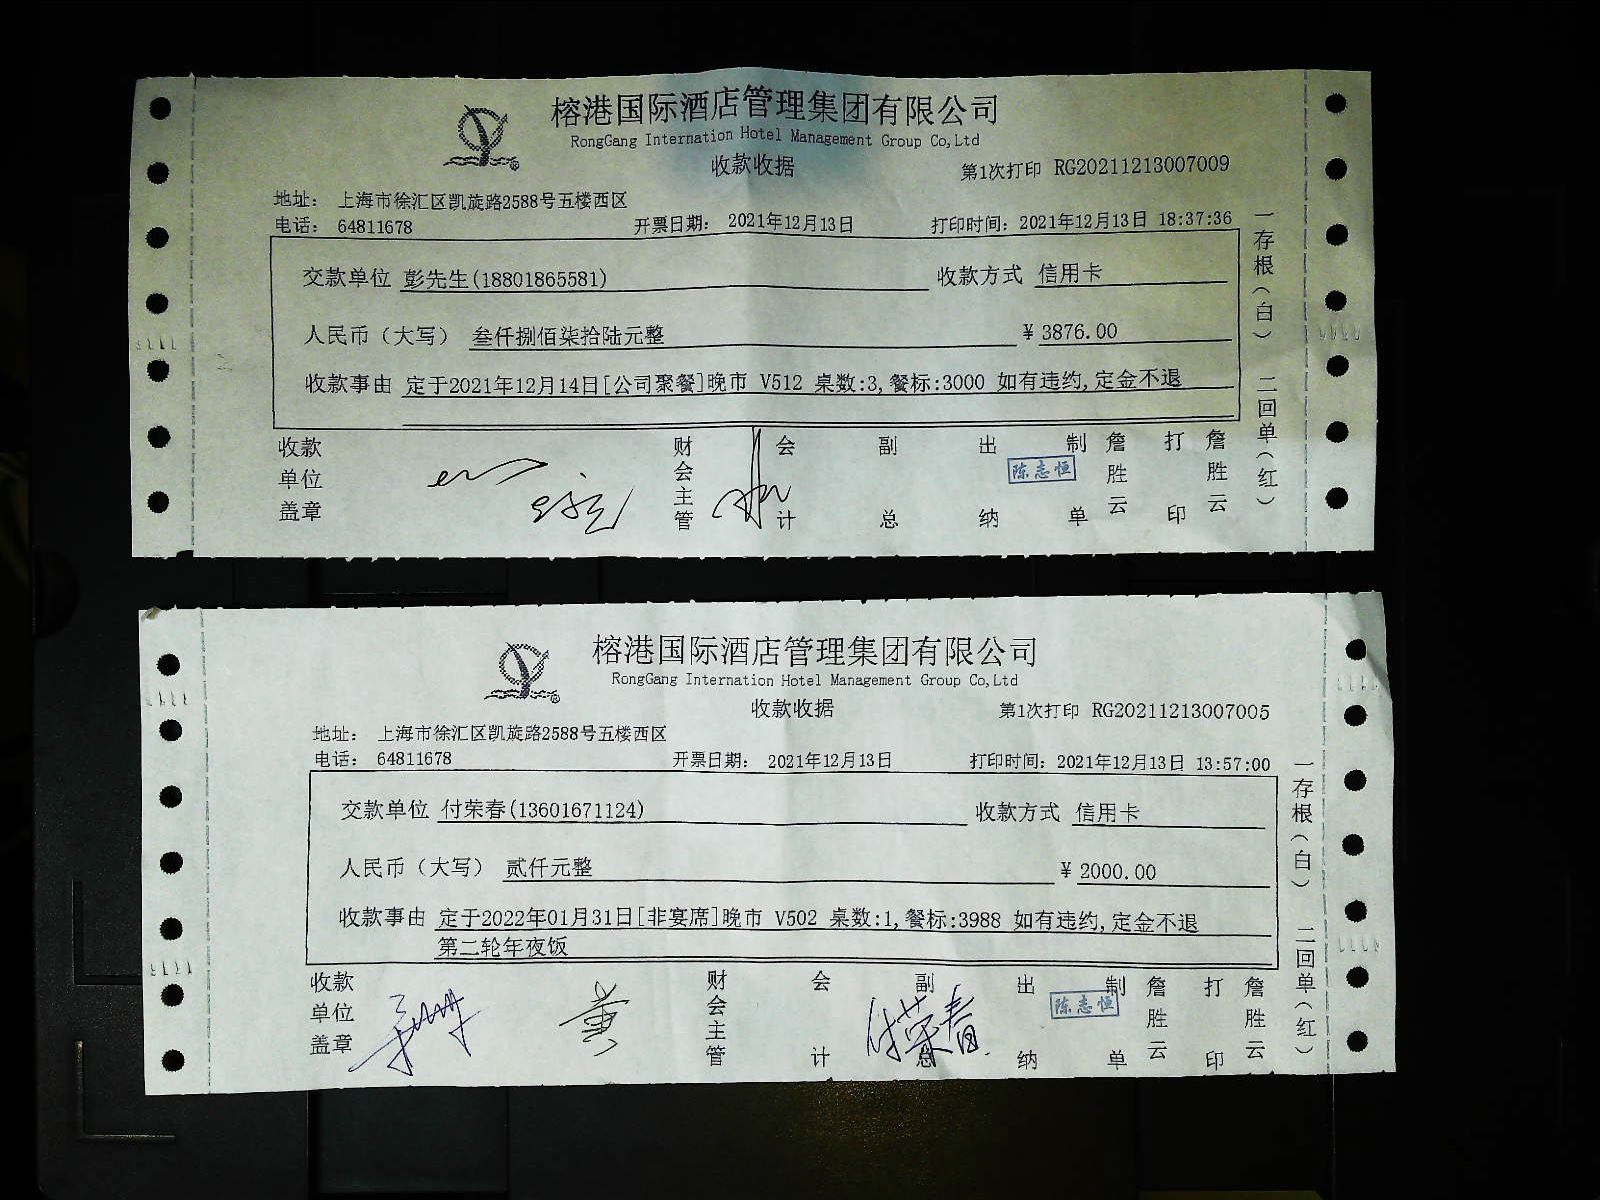 榕港国际酒店管理集团有限公司
RongGang Internation Hotel Management Group Co,Ltd
收款收据
第1次打印 RG20211213007009
地址： 上海市徐汇区凯旋路2588号五楼西区
电话： 64811678 开票日期： 2021年12月13日 打印时间：2021年12月13日 18:37:36
交款单位 彭先生(18801865581) 收款方式 信用卡
人民币（大写） 叁仟捌佰柒拾陆元整 ¥ 3876.00
收款事由 定于2021年12月14日[公司聚餐]晚市 V512 桌数:3,餐标:3000 如有违约,定金不退
收款单位盖章 财会主管 会计 副总 出纳 制单 詹胜云 打印 詹胜云
陈志恒
一存根（白） 二回单（红）
榕港国际酒店管理集团有限公司
RongGang Internation Hotel Management Group Co,Ltd
收款收据
第1次打印 RG20211213007005
地址： 上海市徐汇区凯旋路2588号五楼西区
电话： 64811678 开票日期： 2021年12月13日 打印时间：2021年12月13日 13:57:00
交款单位 付荣春(13601671124) 收款方式 信用卡
人民币（大写） 贰仟元整 ¥ 2000.00
收款事由 定于2022年01月31日[非宴席]晚市 V502 桌数:1,餐标:3988 如有违约,定金不退
第二轮年夜饭
收款单位盖章 财会主管 会计 副总 出纳 制单 詹胜云 打印 詹胜云
付荣春
陈志恒
一存根（白） 二回单（红）